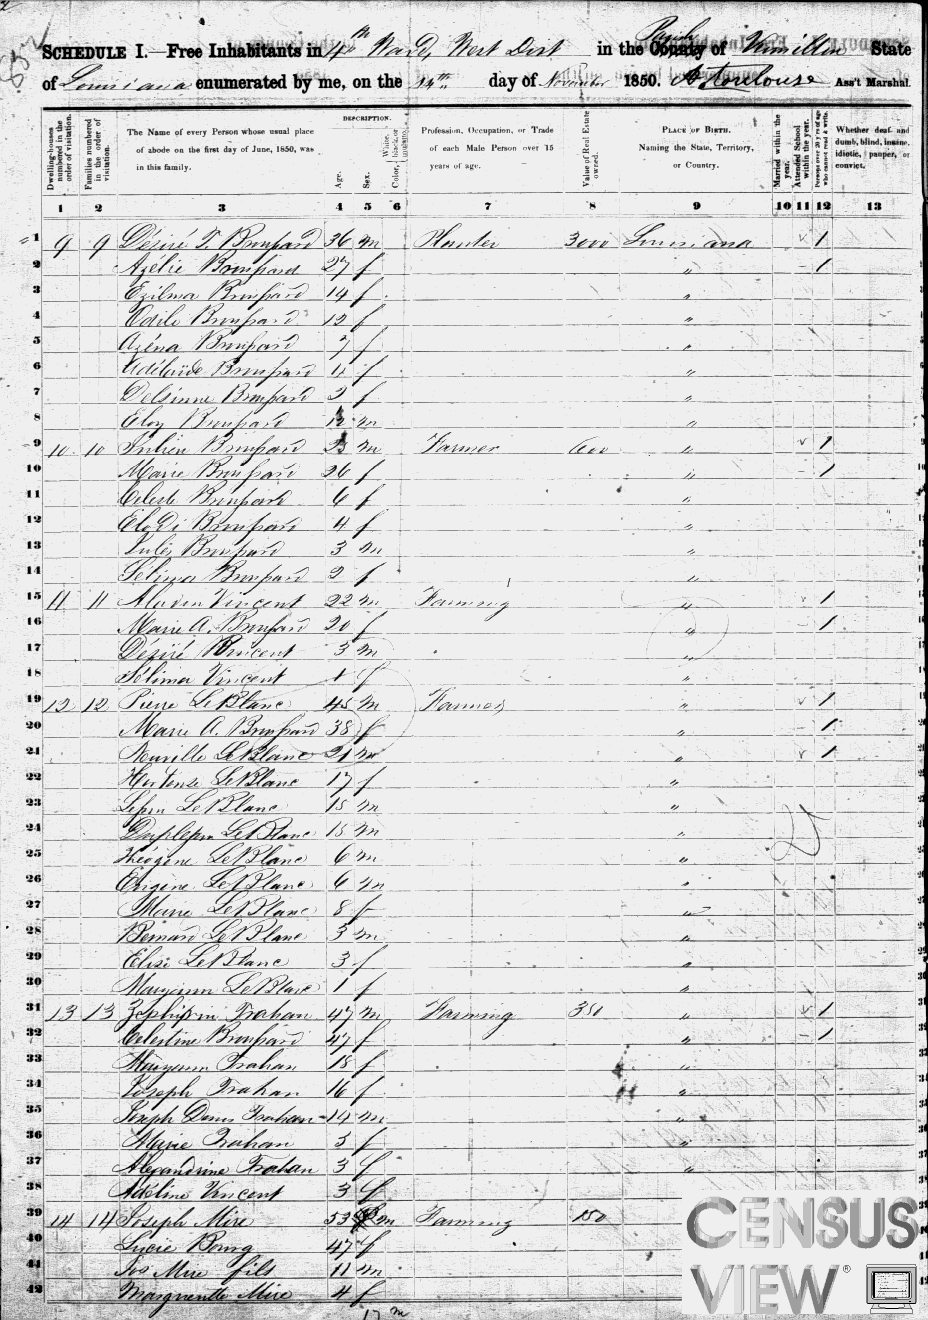 SCHEDULE I.—Free Inhabitants in 4th Ward, West Dist in the Parish County of Vermillion State
of Louisiana enumerated by me, on the 14th day of November 1850. Ass't Marshal.
Dwelling-houses numbered in the order of visitation.
Families numbered in the order of visitation.
The Name of every Person whose usual place of abode on the first day of June, 1850, was in this family.
DESCRIPTION.
Age.
Sex.
Color, White, black, or mulatto.
Profession, Occupation, or Trade of each Male Person over 15 years of age.
Value of Real Estate owned.
PLACE OF BIRTH. Naming the State, Territory, or Country.
Married within the year.
Attended School within the year.
Persons over 20 y'rs of age who cannot read & write.
Whether deaf and dumb, blind, insane, idiotic, pauper, or convict.
1 2 3 4 5 6 7 8 9 10 11 12 13
1 9 9 Désiré T. Broussard 36 m Planter 3000 Louisiana 1
2 Azélie Broussard 27 f " 1
3 Ezilma Broussard 14 f "
4 Odile Broussard 12 f "
5 Azéna Broussard 7 f "
6 Adélaïde Broussard 4 f "
7 Broussard 2 f "
8 Eloy Broussard 12 m "
9 10 10 Julien Broussard m Farmer 600 " 1
10 Marie Broussard 26 f " 1
11 Celeste Broussard 6 f "
12 Elodi Broussard 4 f "
13 Jules Broussard 3 m "
14 Sélima Broussard 2 f "
15 11 11 Vincent 22 m Farming " 1
16 Marie A. Broussard 20 f " 1
17 Désiré Vincent 3 m "
18 Sélima Vincent 1 f "
19 12 12 Pierre LeBlanc 45 m Farmer " 1
20 Marie A. Broussard 38 f " 1
21 Neuville LeBlanc 21 m " 1
22 Hortense LeBlanc 17 f "
23 LeBlanc 15 m "
24 LeBlanc 15 m "
25 Théogène LeBlanc 6 m "
26 Eugène LeBlanc 6 m "
27 Marie LeBlanc 8 f "
28 Bernard LeBlanc 3 m "
29 Elisé LeBlanc 3 f "
30 Maryann LeBlanc 1 f "
31 13 13 Trahan 47 m Farming 350 " 1
32 Celestine Broussard 47 f " 1
33 Maryann Trahan 18 f "
34 Joseph Trahan 16 f "
35 Joseph Denis Trahan 14 m "
36 Marie Trahan 5 f "
37 Alexandrine Trahan 3 f "
38 Adeline Vincent 3 f
39 14 14 Joseph Mire 53 m Farming 150
40 Lucie Bourg 47 f
41 Jos Mire fils 11 m
42 Marguerite Mire 4 f
17 m
CENSUS
VIEW®